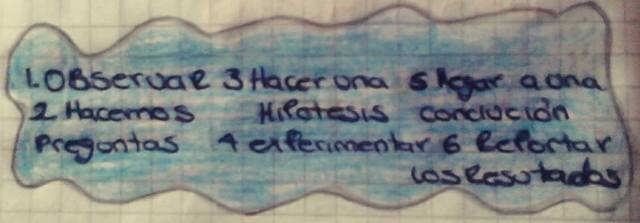 1. Observar 3 Hacer una 5 llegar a una
2 Hacernos Hipotesis conclución
Preguntas 4 experimentar 6 Reportar
los Resutados